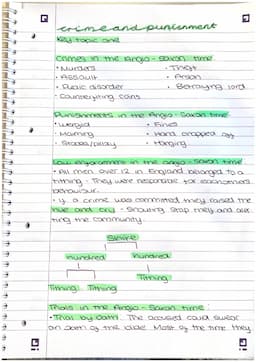 crime and punishment
Key topic one
Crimes in the Anglo-Saxon time
• Murders • Theft
• Assault • Arson
• Public disorder • Betraying lord
• Counterfeiting coins
Punishments in the Anglo-Saxon time
• Wergild • Fines
• Maiming • Hand chopped off
• Stocks/pillory • Hanging
Law enforcement in the Anglo-Saxon time
• All men over 12 in England belonged to a
tithing. They were responsible for eachothers
behaviour.
• If a crime was committed they raised the
hue and cry - Shouting stop
ting the community.
Shire
hundred hundred
Tithing
Tithing Tithing
Trials in the Anglo-Saxon time
• Trial by Oath. The accused could swear
an oath Most of the time they